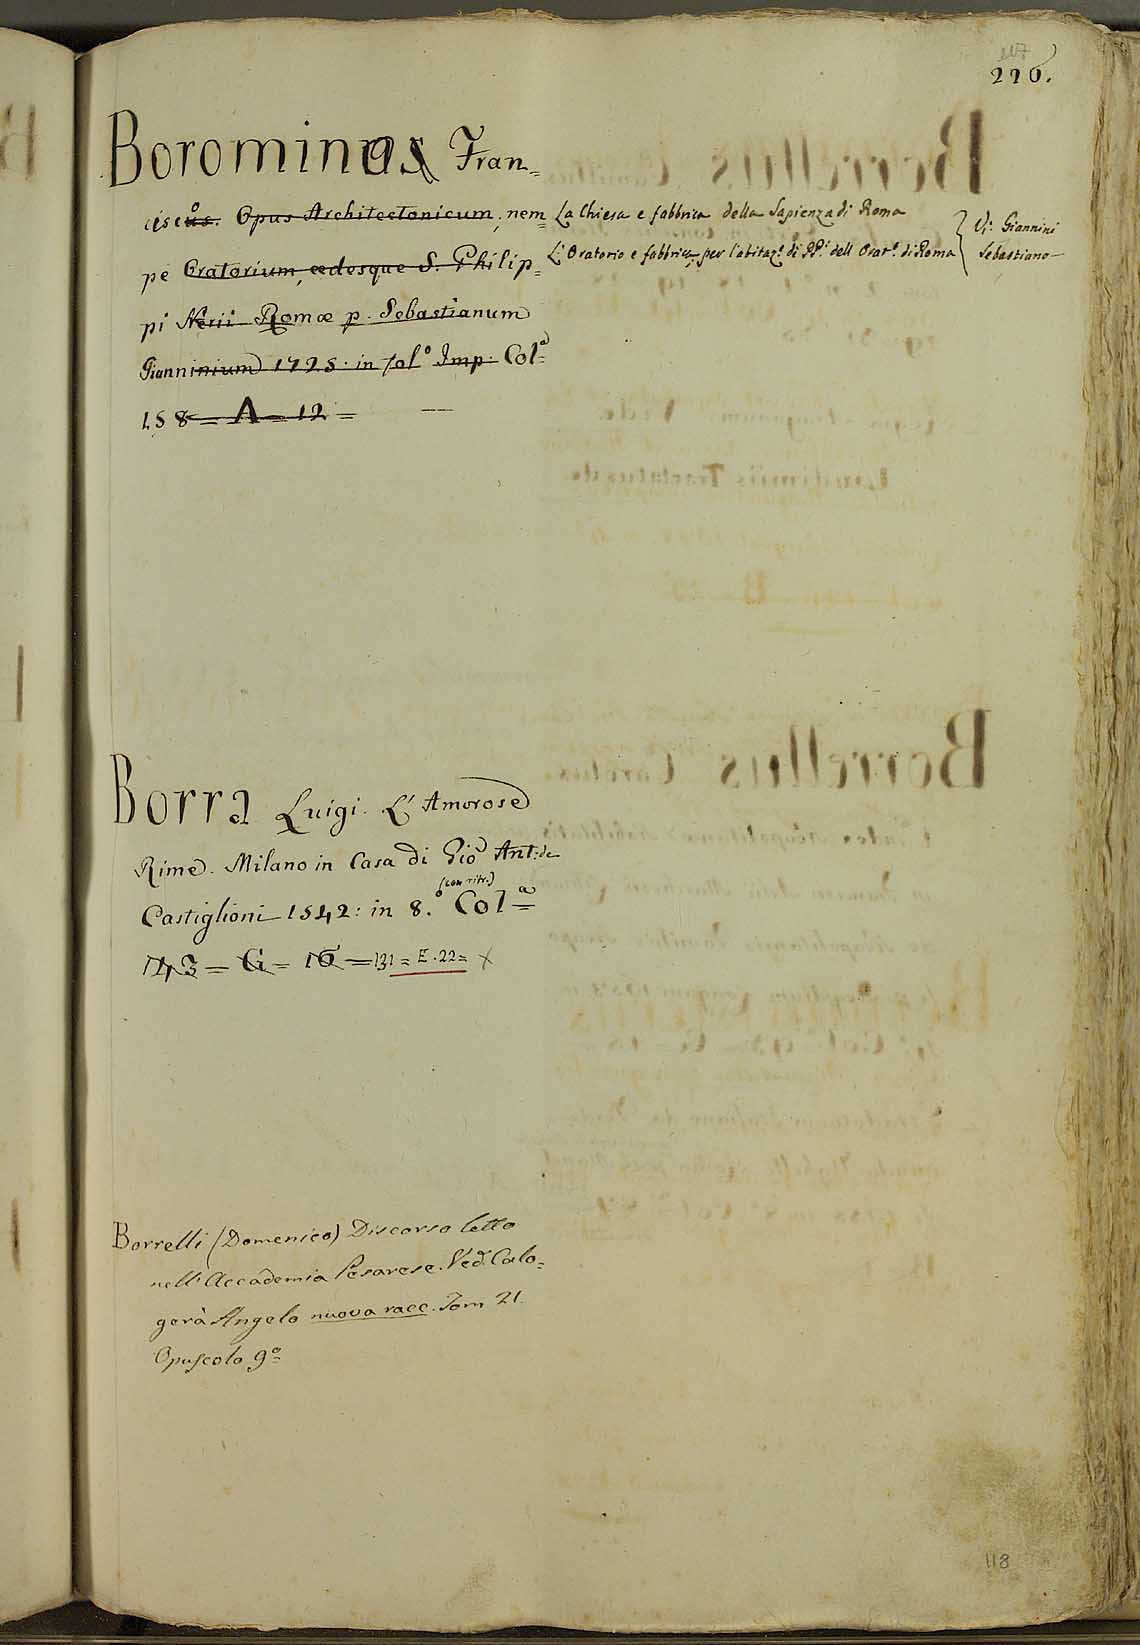 117
226.
Borominus Fran=
ciscus. Opus Architectonicum, nem=
pe Oratorium, ædesque S. Philip=
pi Nerii Romæ p. Sebastianum
Gianninium 1725. in fol.º Imp: Col.ª
158 = A = 12 =
La Chiesa e fabbrica della Sapienza di Roma
L'Oratorio e fabbrica per l'abitaz.e di PP.i dell Orat.o di Roma
V.i Giannini
Sebastiano
Borra Luigi. L'Amorose
Rime. Milano in Casa di Gio Ant: da
Castiglioni 1542: in 8.º (con ritr.) Col.ª
143 = G = 16 = 131 = E. 22 = X
Borrelli (Domenico) Discorso letto
nell'Accademia Pesarese. Ved. Calo=
gerà Angelo nuova racc. Tom 21.
Opuscolo 9º
118